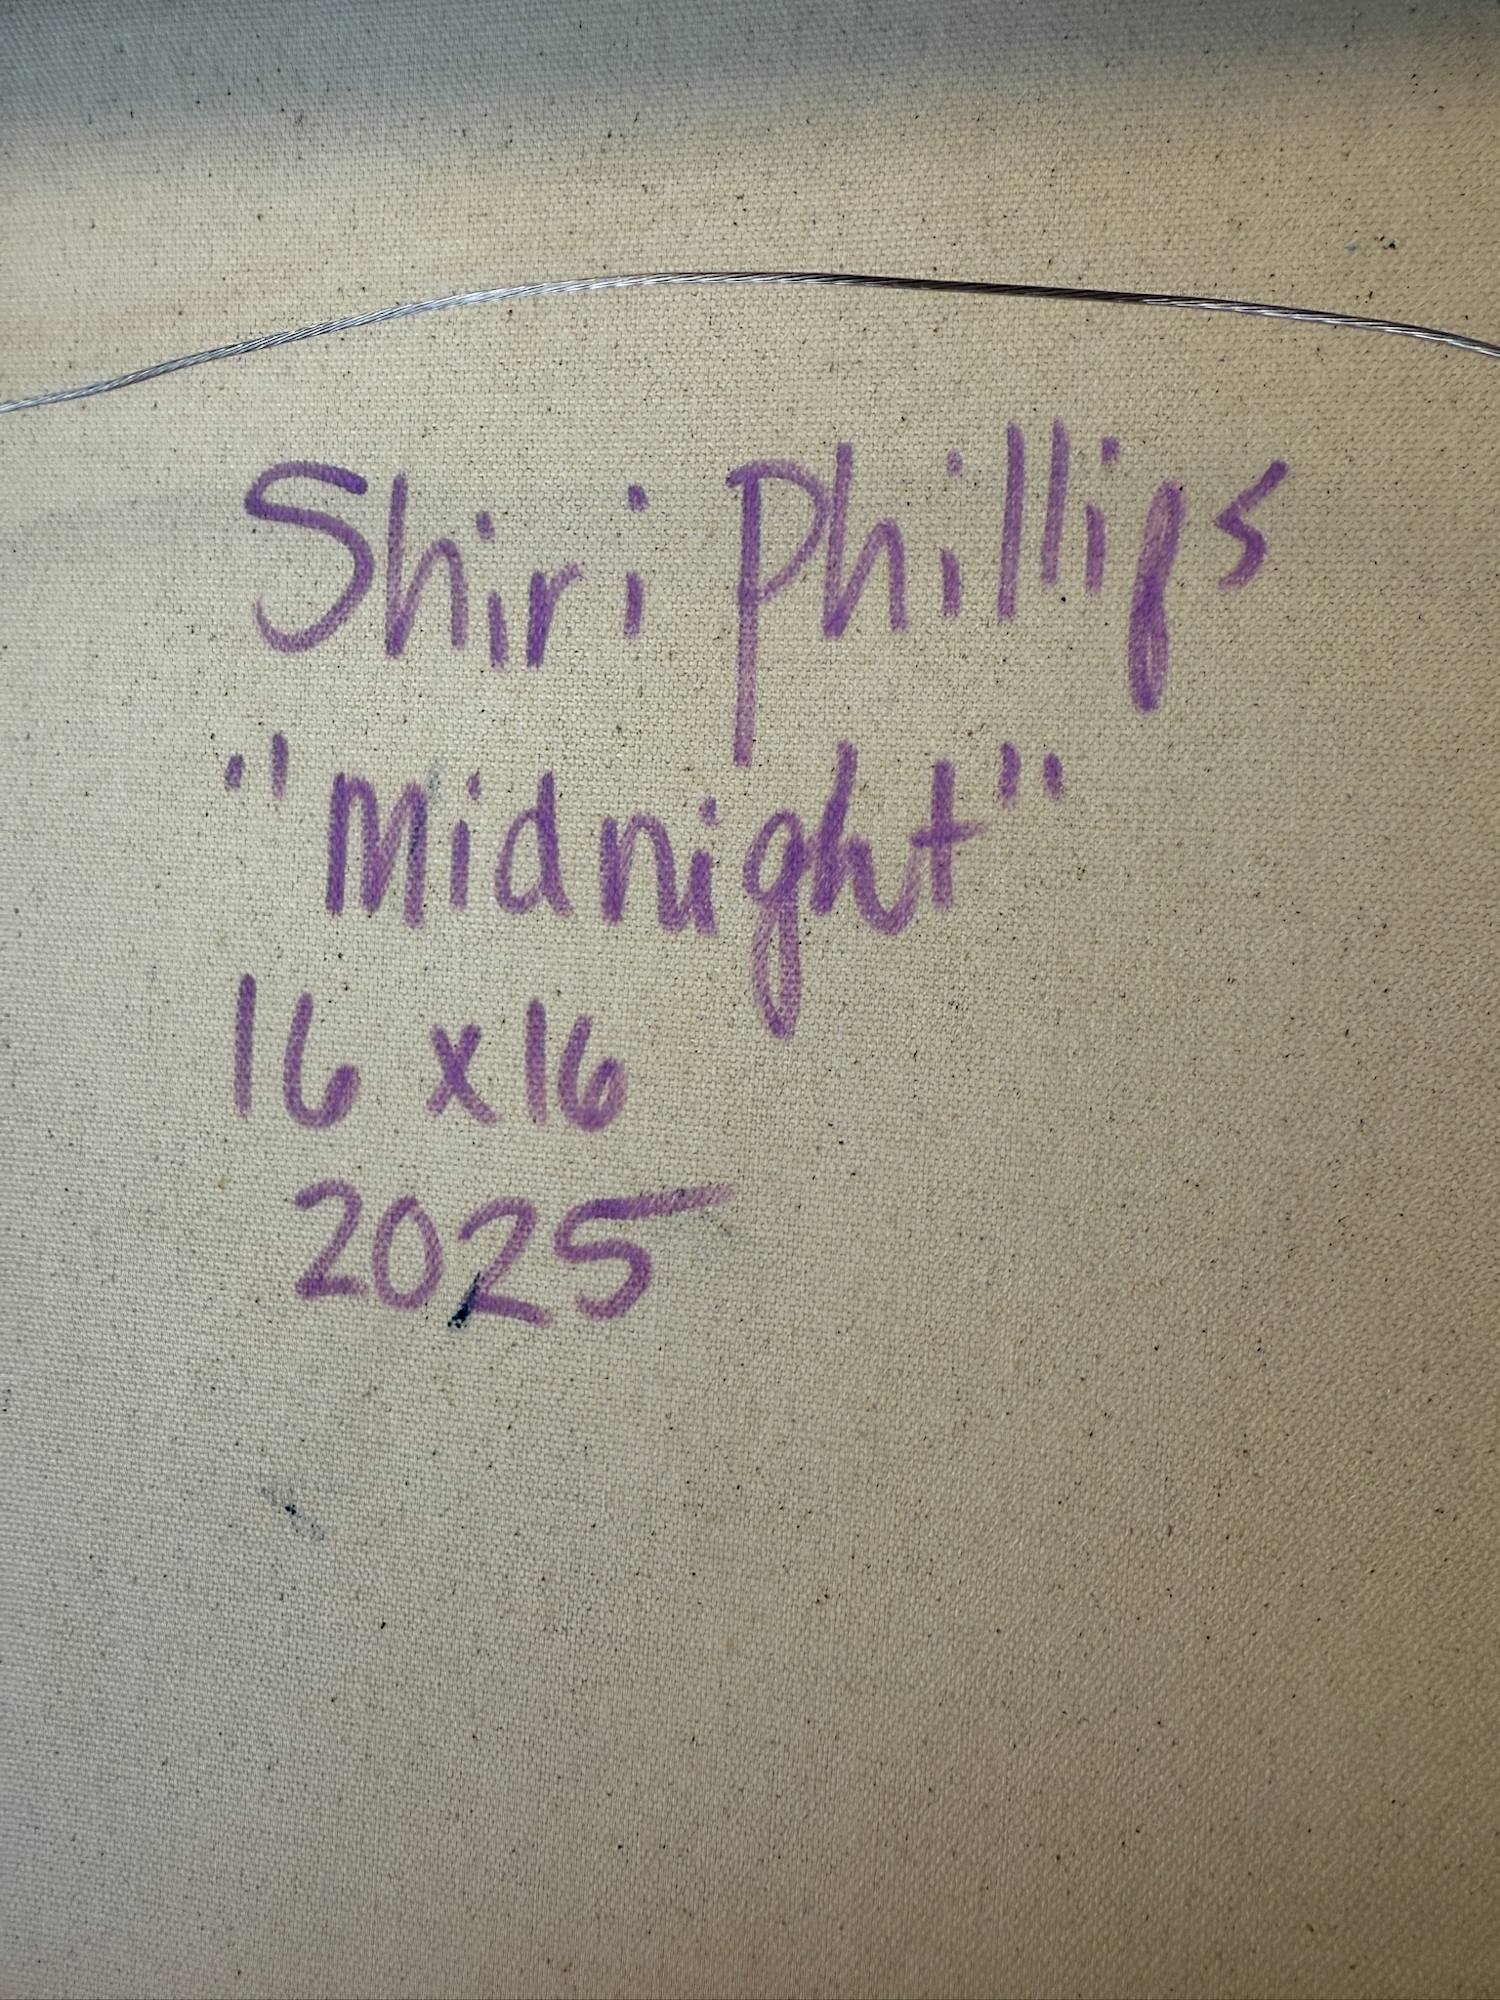 Shiri Phillips
"Midnight"
16 x 16
2025